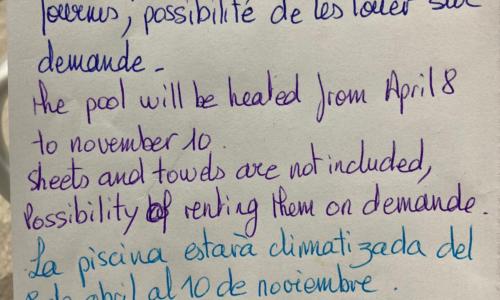 fournis, possibilité de les louer sur
demande -
The pool will be heated from April 8
to november 10.
sheets and towels are not included,
Possibility of renting them on demande.
La piscina estarà climatizada del
8 de abril al 10 de noviembre.